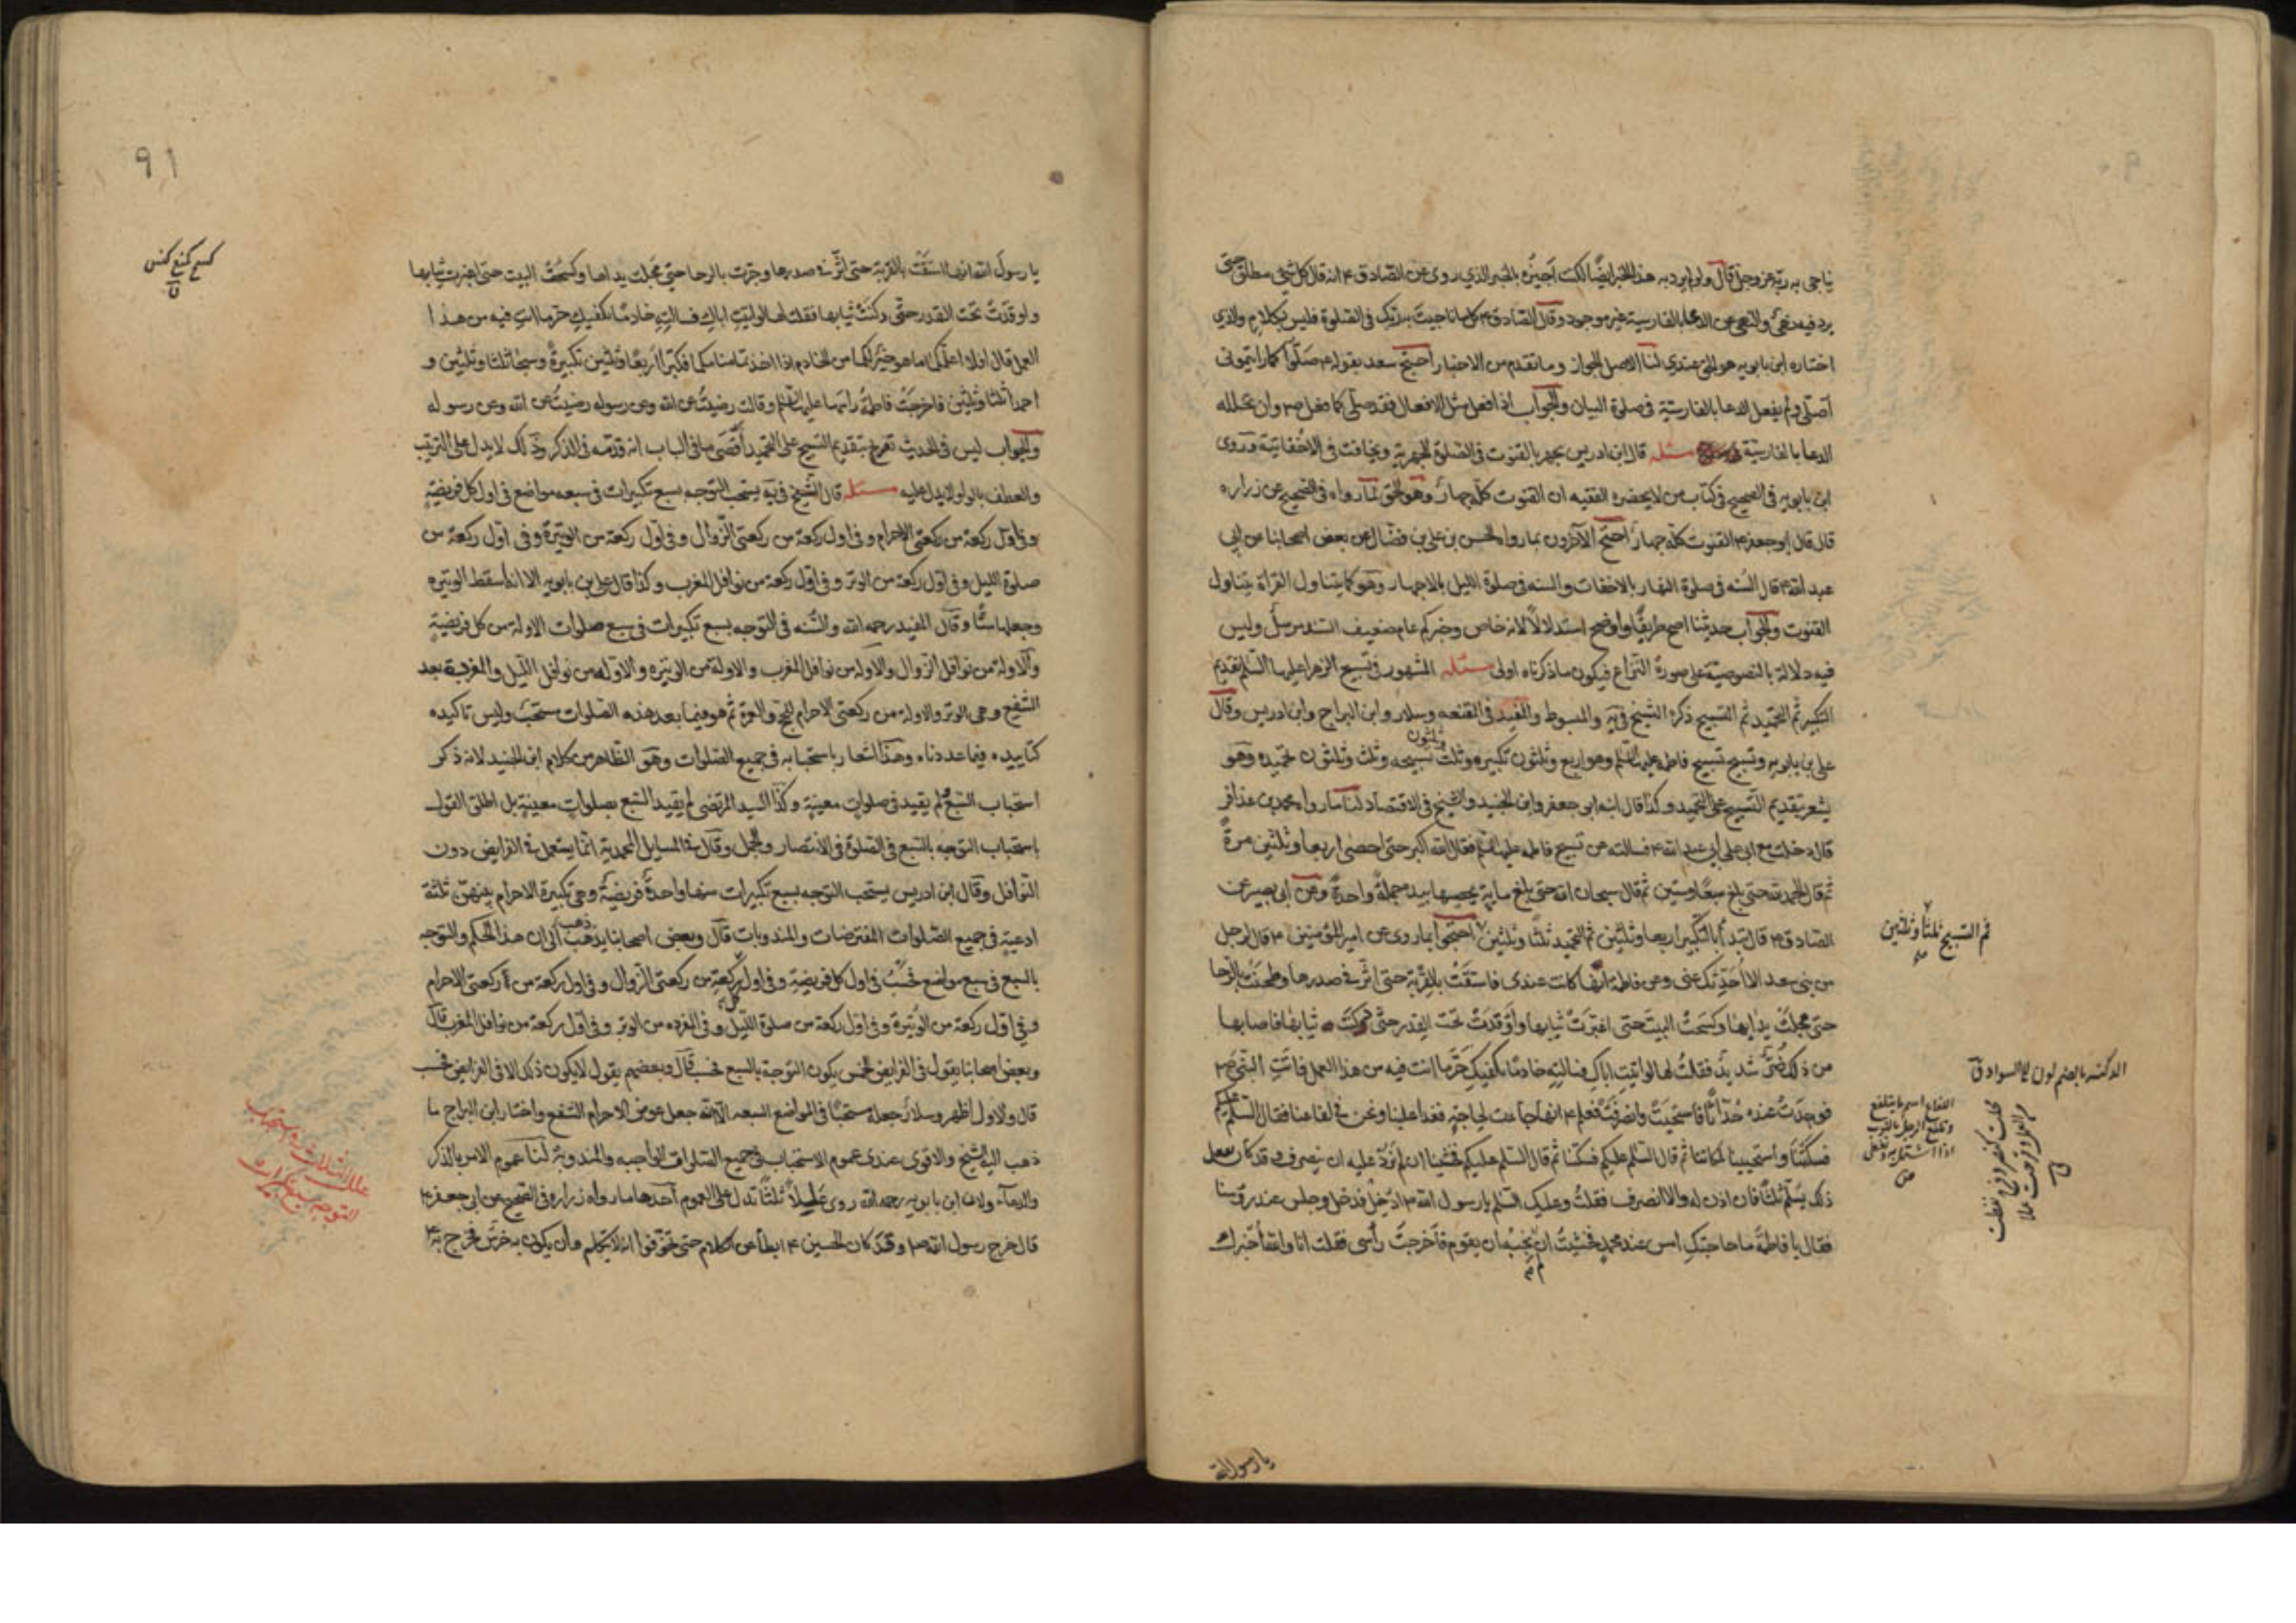 يناجي به ربه عزوجل قال ولو لم يرد به هذا الخبر ايضا لكنت اجيزه بالخبر الذي روى عن الصادق ع انه قال كل شئ مطلق حتى
يرد فيه نهى والنهى عن الدعا بالفارسية غير موجود وقال الصادق ع كل ما ناجيت به ربك فى الصلوة فليس بكلام والذى
اختاره ابن بابويه هو الحق عندى لنا الاصل الجواز وما تقدم من الاخبار احتج سعد بقوله ع صلوا كما رايتمونى
اصلى ولم يفعل الدعا بالفارسية فى صلوة البيان والجواب اذا فعل مثل الافعال فقد صلى كما فعل ص وان تخلله
الدعا بالفارسية مسئله قال ابن ادريس يجهر بالقنوت فى الصلوة الجهرية ويخافت فى الاخفاتية وروى
ابن بابويه فى الصحيح فى كتاب من لا يحضره الفقيه ان القنوت كله جهار وهو الحق لما رواه فى الصحيح عن زراره
قال قال ابو جعفر ع القنوت كله جهار احتج الآخرون بما رواه الحسن بن على بن فضال عن بعض اصحابنا عن ابى
عبد الله ع قال السنه فى صلوة النهار بالاخفات والسنه فى صلوة الليل بالاجهار وهو كما يتناول القراة يتناول
القنوت والجواب حديثنا اصح طريقا واوضح استدلالا لانه خاص وخبركم عام ضعيف السند مرسل وليس
فيه دلالة بالنصوصية على صورة النزاع فيكون ما ذكرناه اولى مسئله المشهور فى تسبيح الزهرا عليها السلم تقديم
التكبير ثم التحميد ثم التسبيح ذكره الشيخ فى يه والمبسوط والمفيد فى المقنعه وسلار وابن البراج وابن ادريس وقال
على بن بابويه وتسبح تسبيح فاطمه عليها السلم وهو اربع وثلثون تكبيره وثلث وثلثون تسبيحه وثلث وثلثون تحميده وهو
يشعر بتقديم التسبيح على التحميد وكذا قال ابنه ابو جعفر وابن الجنيد والشيخ فى الاقتصاد لنا ما رواه محمد بن عذافر
قال دخلت مع ابى على ابى عبد الله ع فسالته عن تسبيح فاطمه عليها السلم فقال الله اكبر حتى احصى اربعا وثلثين مرة
ثم قال الحمد لله حتى بلغ سبعا وستين ثم قال سبحان الله حتى بلغ مايه يحصيها بيده جملة واحدة وعن ابى بصير عن
الصادق ع قال تبدأ بالتكبير اربعا وثلثين ثم التحميد ثلثا وثلثين احتجوا بما روى عن امير المؤمنين ع قال لرجل
ثم التسبيح ثلثا وثلثين
من بنى سعد الا احدثك عنى وعن فاطمة انها كانت عندى فاستقت بالقربة حتى اثر فى صدرها وطحنت بالرحا
حتى مجلت يداها وكسحت البيت حتى اغبرت ثيابها واوقدت تحت القدر حتى دكنت ثيابها فاصابها
من ذلك ضر شديد فقلت لها لو اتيت اباك فسالتيه خادما يكفيك حر ما انت فيه من هذا العمل فاتت النبى ص
الدكنه بالضم لون الى السواد ق
فوجدت عنده حداثا فاستحيت وانصرفت فعلم ع انها جاءت لحاجة فغدا علينا ونحن فى لفاعنا فقال السلم عليكم
اللفاع اسم ما يتلفع
وتلفع الرجل بالثوب
اذا اشتمل به وتغطى
ص
فسكتنا واستحيينا لمكاننا ثم قال السلم عليكم فسكتنا ثم قال السلم عليكم فخشينا ان لم نرد عليه ان ينصرف وقد كان يفعل
ذلك يسلم ثلثا فان اذن له والا انصرف فقلت وعليك السلم يا رسول الله ص ادخل فدخل وجلس عند رؤسنا
فقال يا فاطمة ما حاجتك امس عند محمد فخشيت ان لم نجبه ان يقوم فاخرجت رأسى فقلت انا والله اخبرك
يا رسول الله
٩١
كسح كمنع كنس
ق
يا رسول الله انها استقت بالقربة حتى اثر فى صدرها وجرت بالرحا حتى مجلت يداها وكسحت البيت حتى اغبرت ثيابها
واوقدت تحت القدر حتى دكنت ثيابها فقلت لها لو اتيت اباك فسالتيه خادما يكفيك حر ما انت فيه من هذا
العمل قال افلا اعلمكما ما هو خير لكما من الخادم اذا اخذتما منامكما فكبرا اربعا وثلثين تكبيرة وسبحا ثلثا وثلثين و
احمدا ثلثا وثلثين فاخرجت فاطمة راسها عليها السلم وقالت رضيت عن الله وعن رسوله رضيت عن الله وعن رسوله
والجواب ليس فى الحديث تصريح بتقديم التسبيح على التحميد اقصى ما فى الباب انه قدمه فى الذكر وذلك لا يدل على الترتيب
والعطف بالواو لا يدل عليه مسئله قال الشيخ فى يه يستحب التوجه بسبع تكبيرات فى سبعه مواضع فى اول كل فريضة
وفى اول ركعة من ركعتى الاحرام وفى اول ركعة من ركعتى الزوال وفى اول ركعة من الوتيرة وفى اول ركعة من
صلوة الليل وفى اول ركعة من الوتر وفى اول ركعة من نوافل المغرب وكذا قال على بن بابويه الا انه اسقط الوتيره
وجعلها ستا وقال المفيد رحمه الله والسنه فى التوجه بسبع تكبيرات فى سبع صلوات الاولة من كل فريضية
والاولة من نوافل الزوال والاولة من نوافل المغرب والاولة من الوتيره والاولة من نوافل الليل والمفردة بعد
الشفع وهى الوتر والاولة من ركعتى الاحرام للحج والعمرة ثم هو فيما بعد هذه الصلوات مستحب وليس تاكيده
كتاكيده فيما عددناه وهذا اشعار باستحبابه فى جميع الصلوات وهو الظاهر من كلام ابن الجنيد لانه ذكر
استحباب السبع ولم يقيد فى صلوات معينة وكذا السيد المرتضى لم يقيد السبع بصلوات معينة بل اطلق القول
باستحباب التوجه بالسبع فى الصلوة فى الانتصار والجمل وقال فى المسايل المحمدية انما يستعمل فى الفرايض دون
النوافل وقال ابن ادريس يستحب التوجه بسبع تكبيرات منها واحدة فريضة وهى تكبيرة الاحرام بينهن ثلثة
ادعية فى جميع الصلوات المفترضات والمندوبات قال وبعض اصحابنا يذهب الى ان هذا الحكم والتوجه
بالسبع فى سبع مواضع فحسب فى اول كل فريضة وفى اول ركعة من ركعتى الزوال وفى اول ركعة من ركعتى الاحرام
وفى اول ركعة من الوتيرة وفى اول ركعة من صلوة الليل وفى المفرده من الوتر وفى اول ركعة من نوافل المغرب قال
وبعض اصحابنا يقول فى الفرايض الخمس يكون التوجه بالسبع فحسب قال وبعضهم يقول لا يكون ذلك الا فى الفرايض فحسب
قال والاول اظهر وسلار جعله مستحبا فى المواضع السبعه الا انه جعل عوض الاحرام الشفع واختار ابن البراج ما
ذهب اليه الشيخ والاقوى عندى عموم الاستحباب فى جميع الصلوات الواجبه والمندوبة لنا عموم الامر بالذكر
والدعاء ولان ابن بابويه رحمه الله روى عللا ثلثا تدل على العموم احدها ما رواه زراره فى الصحيح عن ابى جعفر ع
علل الثلاث لاستحباب
التوجه بسبع تكبيرات
قال خرج رسول الله ص وقد كان الحسين ع ابطأ عن الكلام حتى تخوفوا انه لا يتكلم وان يكون به خرس فخرج به ع